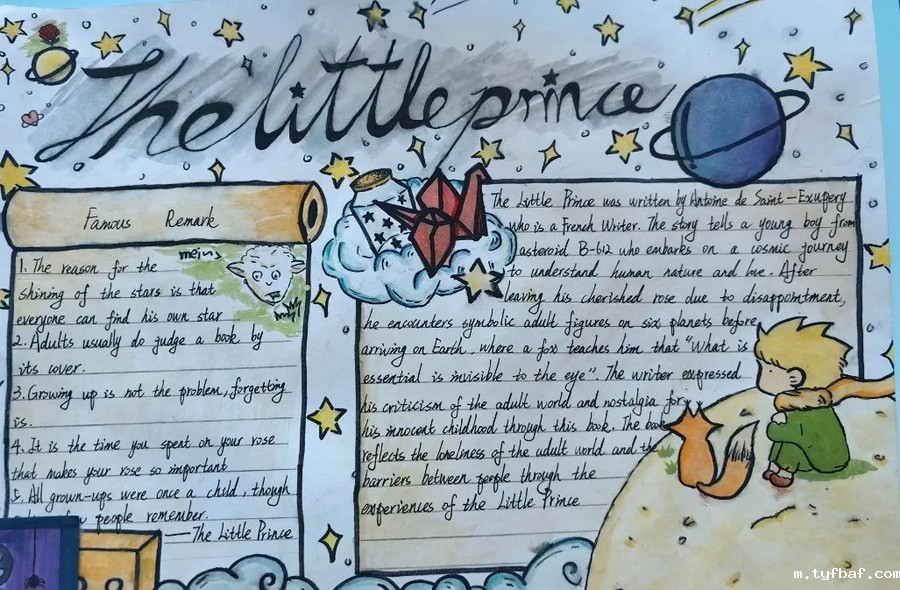 The little prince
Famous Remark
mein~
1. The reason for the
shining of the stars is that
everyone can find his own star
2. Adults usually do judge a book by
its cover.
3. Growing up is not the problem, forgetting
is.
4. It is the time you spent on your rose
that makes your rose so important
5. All grown-ups were once a child, though
people remember.
—The Little Prince
The Little Prince was written by Antoine de Saint-Exupery
who is a French Writer. The story tells a young boy from
asteroid B-612 who embarks on a cosmic journey
to understand human nature and love. After
leaving his cherished rose due to disappointment,
he encounters symbolic adult figures on six planets before
arriving on Earth, where a fox teaches him that "What is
essential is invisible to the eye". The writer expressed
his criticism of the adult world and nostalgia for
his innocent childhood through this book. The book
reflects the loneliness of the adult world and the
barriers between people through the
experiences of the Little Prince
m.tyfbaf.com